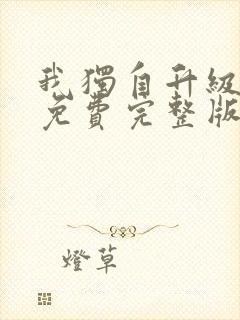 我獨自升級
免費完整版
燈草